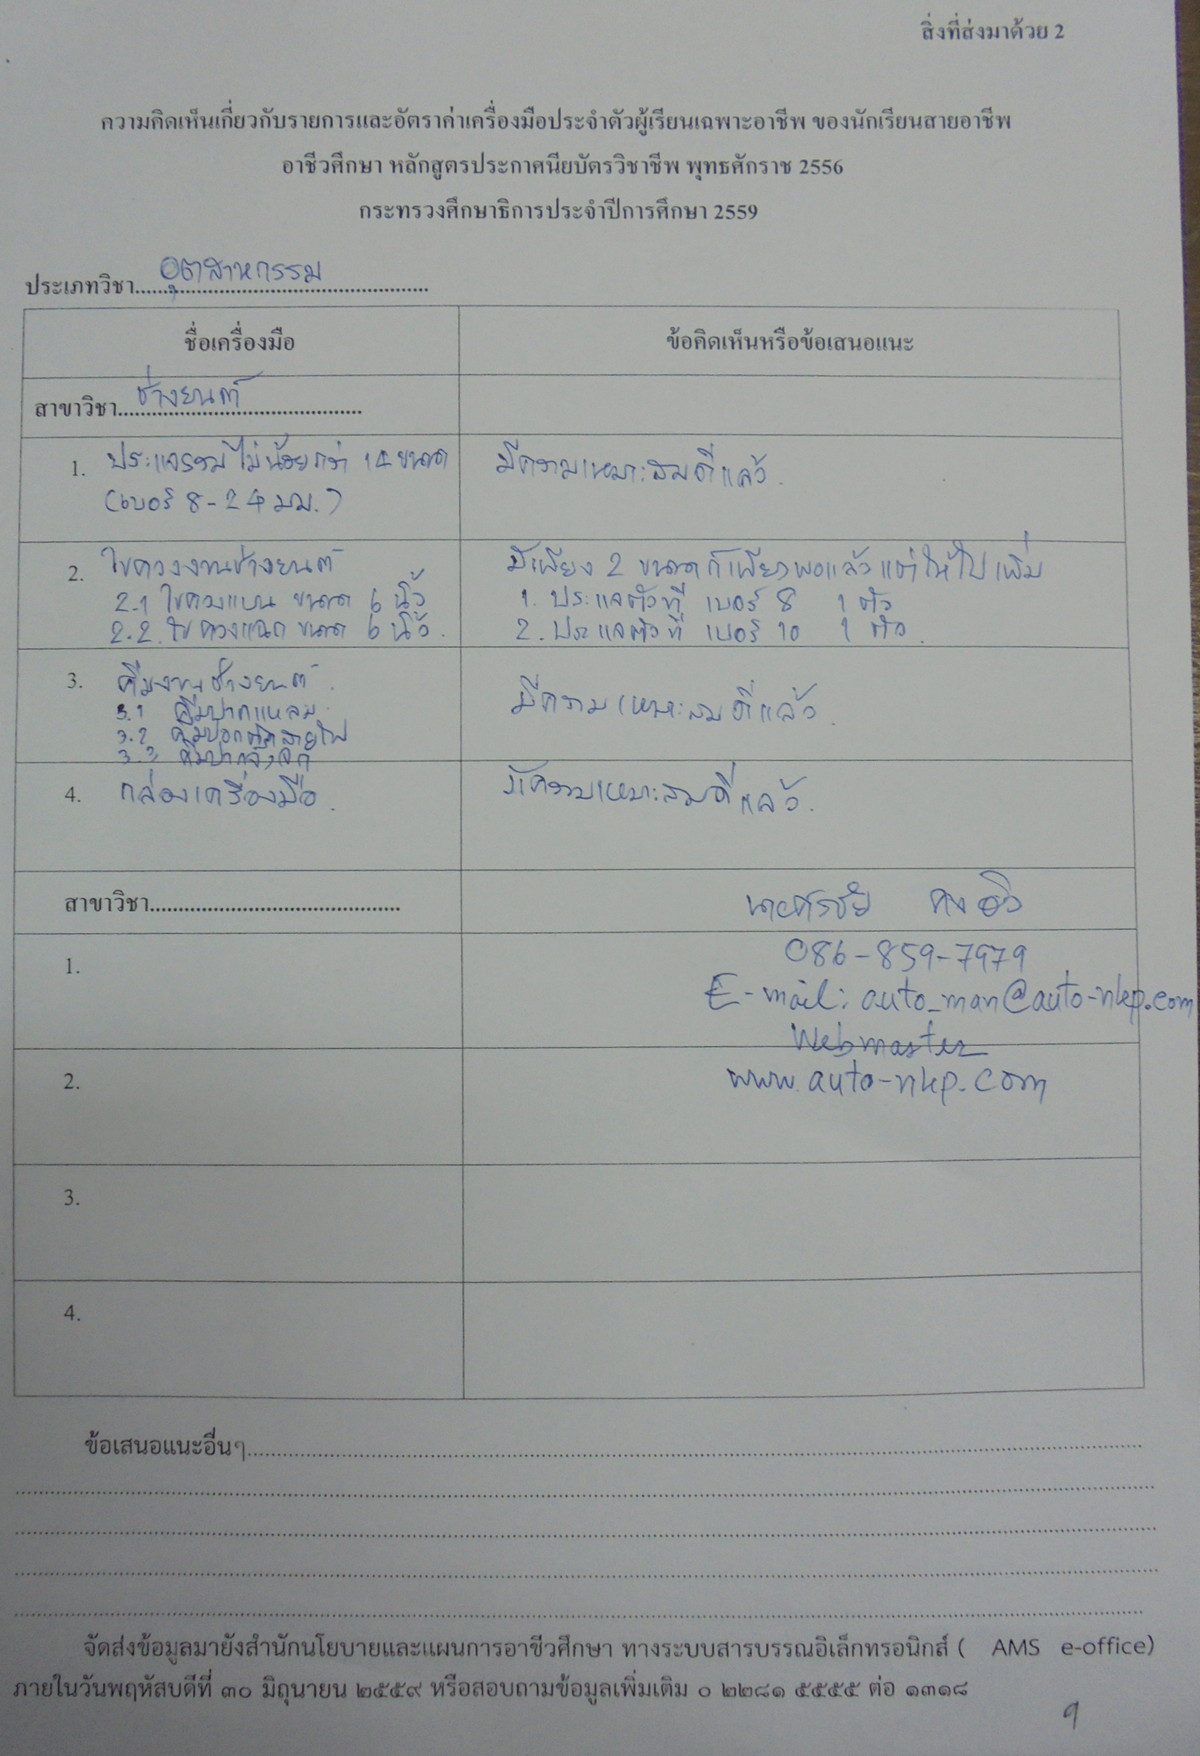 สิ่งที่ส่งมาด้วย 2
ความคิดเห็นเกี่ยวกับรายการและอัตราค่าเครื่องมือประจำตัวผู้เรียนเฉพาะอาชีพ ของนักเรียนสายอาชีพ
อาชีวศึกษา หลักสูตรประกาศนียบัตรวิชาชีพ พุทธศักราช 2556
กระทรวงศึกษาธิการประจำปีการศึกษา 2559
ประเภทวิชา อุตสาหกรรม
ชื่อเครื่องมือ ข้อคิดเห็นหรือข้อเสนอแนะ
สาขาวิชา ช่างยนต์
1. ประแจรวมไม่น้อยกว่า 14 ขนาด
(เบอร์ 8-24 มม.)
มีความเหมาะสมดีแล้ว.
2. ไขควงงานช่างยนต์
2.1 ไขควงแบน ขนาด 6 นิ้ว
2.2. ไขควงแฉก ขนาด 6 นิ้ว.
มีเพียง 2 ขนาดก็เพียงพอแล้วแต่ให้ไปเพิ่ม
1. ประแจตัวที เบอร์ 8 1 ตัว
2. ประแจตัวที เบอร์ 10 1 ตัว.
3. คีมงานช่างยนต์.
3.1 คีมปากแหลม.
3.2 คีมปอกตัดสายไฟ
3.3 คีมปากจิ้งจก
มีความเหมาะสมดีแล้ว.
4. กล่องเครื่องมือ.
มีความเหมาะสมดีแล้ว.
สาขาวิชา
086-859-7979
1.
E-mail: auto_man@auto-nkp.com
Webmaster
2.
www.auto-nkp.com
3.
4.
ข้อเสนอแนะอื่นๆ
จัดส่งข้อมูลมายังสำนักนโยบายและแผนการอาชีวศึกษา ทางระบบสารบรรณอิเล็กทรอนิกส์ ( AMS e-office)
ภายในวันพฤหัสบดีที่ ๓๐ มิถุนายน ๒๕๕๙ หรือสอบถามข้อมูลเพิ่มเติม ๐ ๒๒๘๑ ๕๕๕๕ ต่อ ๑๓๑๘